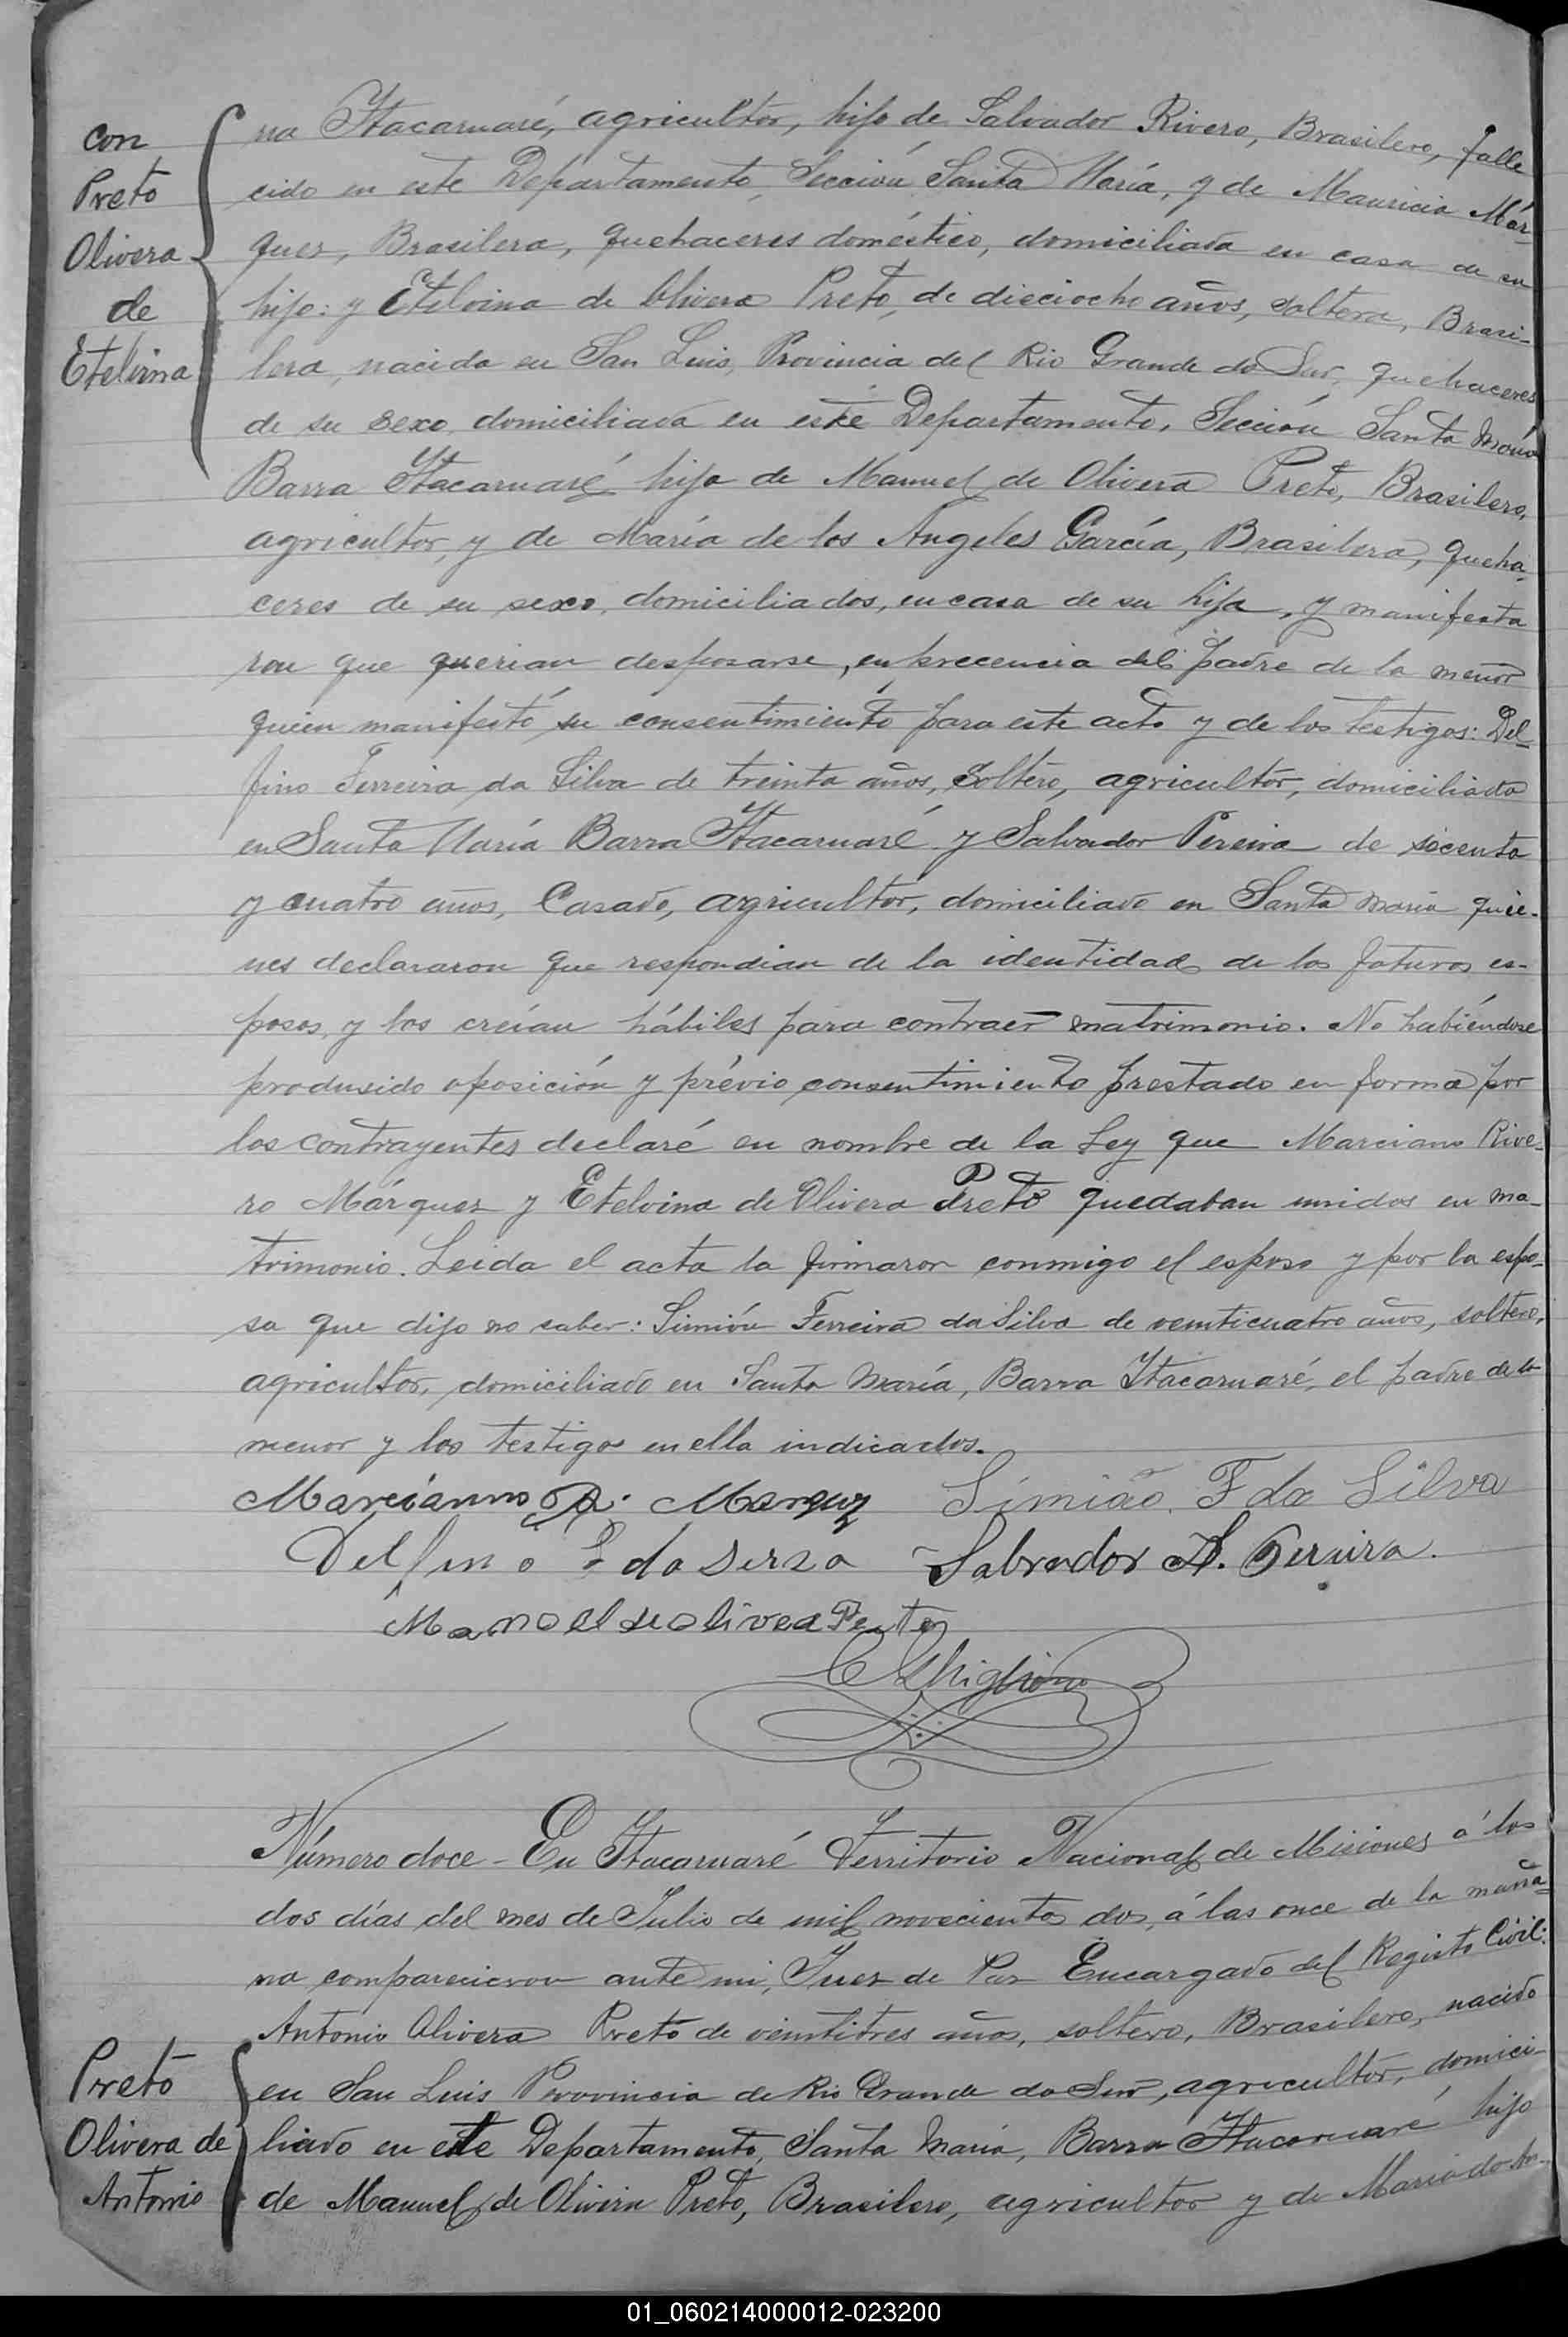 con
Preto
Olivera
de
Etelvina
na Itacaruaré, agricultor, hijo de Salvador Rivero, Brasilero, falle
cido en este Departamento, Sección Santa María, y de Mauricia Már-
quez, Brasilera, quehaceres doméstico, domiciliada en casa de su
hijo: y Etelvina de Olivera Preto, de dieciocho años, soltera, Brasi-
lera, nacida en San Luis, Provincia del Rio Grande do Sur, quehaceres
de su sexo, domiciliada en este Departamento, Sección Santa María
Barra Itacaruaré hija de Manuel de Olivera Preto, Brasilero,
agricultor, y de María de los Angeles García, Brasilera, queha-
ceres de su sexo, domiciliados, en casa de su hija, y manifesta
ron que querian desposarse, en precencia del padre de la menor
quien manifestó su consentimiento para este acto y de los testigos: Del-
fino Ferreira da Silva de treinta años, soltero, agricultor, domiciliado
en Santa María Barra Itacaruaré y Salvador Pereira de secenta
y cuatro años, Casado, agricultor, domiciliado en Santa María quie-
nes declararon que respondian de la identidad de los futuros es-
posos, y los creían hábiles para contraer matrimonio. No habiéndose
produsido oposición y prévio consentimiento prestado en forma por
los contrayentes declaré en nombre de la Ley que Marciano Rive-
ro Márquez y Etelvina de Olivera Preto quedaban unidos en ma-
trimonio. Leida el acta la firmaron conmigo el esposo y por la espo-
sa que dijo no saber: Simión Ferreira da Silva de veinticuatro años, soltero,
agricultor, domiciliado en Santa María, Barra Itacaruaré, el padre de la
menor y los testigos en ella indicados.
Marcianno R. Marquz Simião F da Silva
Delfino F da Serza Salvador A. Pereira.
Manoel de olivea Perto
C Ghiglione
Número doce - En Itacaruaré Territorio Nacional de Misiones á los
dos días del mes de Julio de mil novecientos dos, á las once de la maña-
na comparecieron ante mi, Juez de Paz Encargado del Registo Civil:
Antonio Olivera Preto de veintitres años, soltero, Brasilero, nacido
Preto
Olivera de
Antonio
en San Luis Provincia de Rio Grande do Sur, agricultor, domici-
liado en este Departamento, Santa María, Barra Itacaruaré hijo
de Manuel de Olivira Preto, Brasilero, agricultor y de Maria do An-
01_060214000012-023200